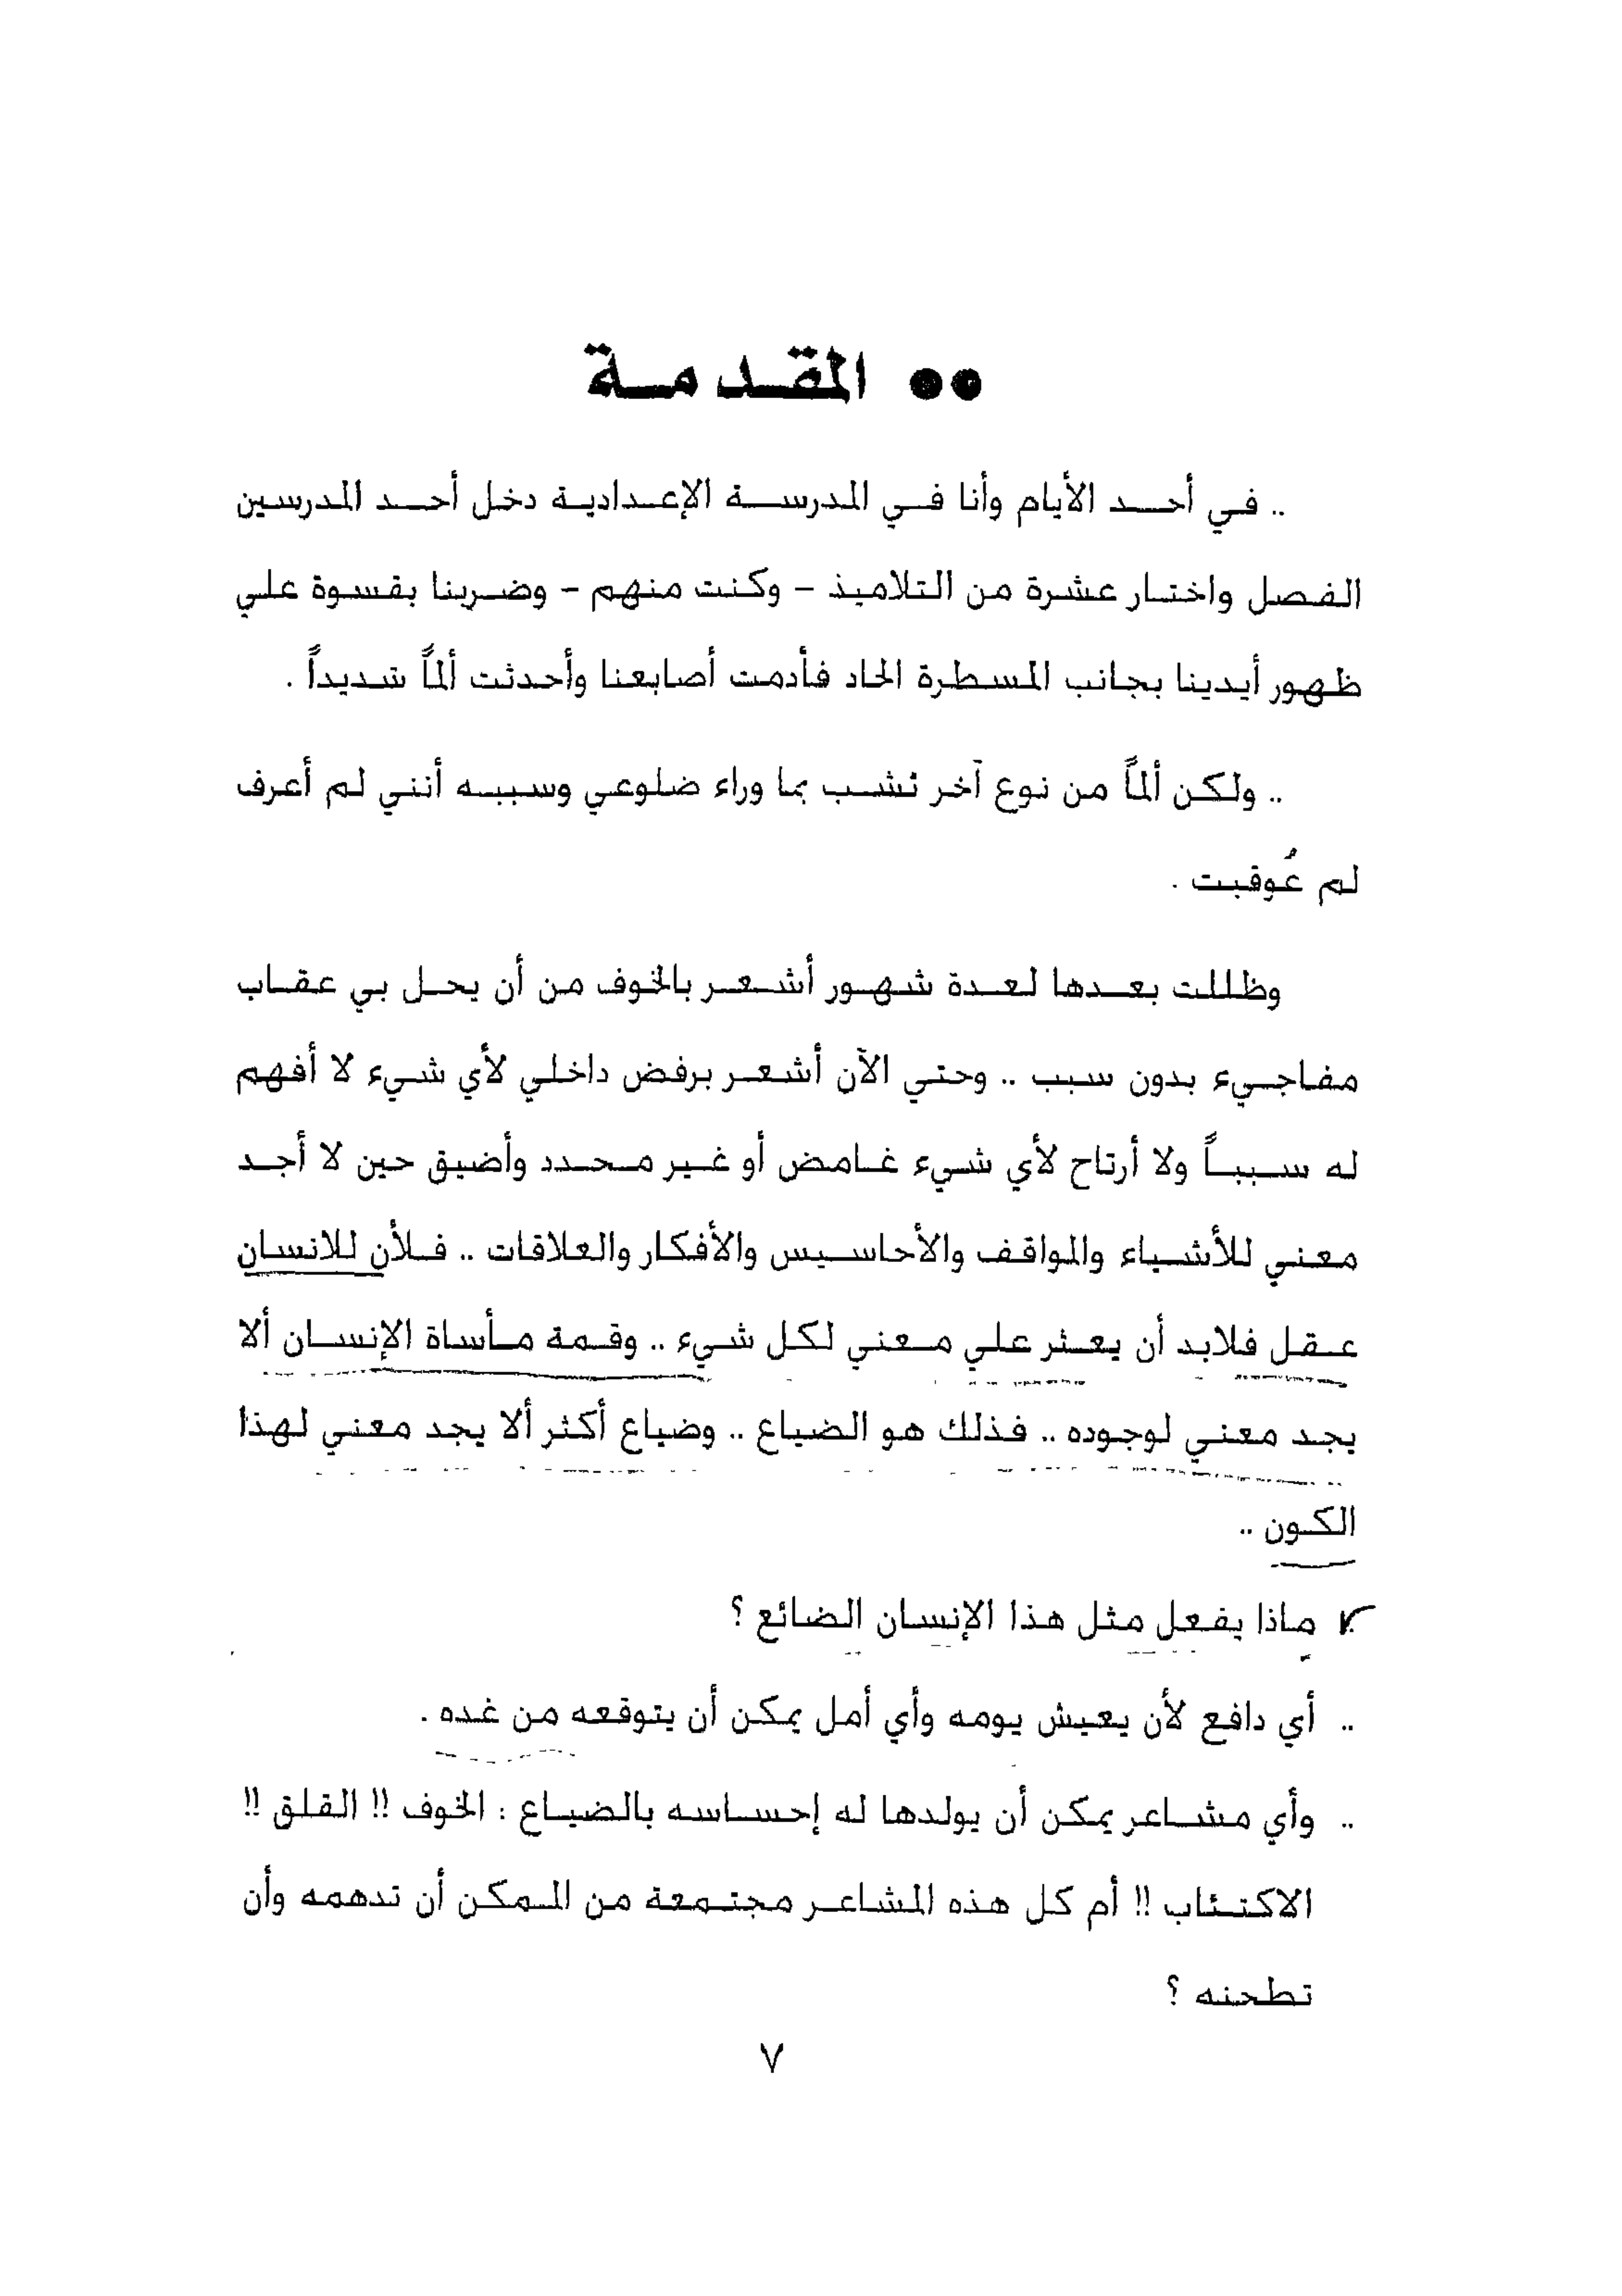 ●● المقدمة
.. في أحد الأيام وأنا في المدرسة الإعدادية دخل أحد المدرسين
الفصل واختار عشرة من التلاميذ – وكنت منهم – وضربنا بقسوة علي
ظهور أيدينا بجانب المسطرة الحاد فأدمت أصابعنا وأحدثت ألماً شديداً .
.. ولكن ألماً من نوع آخر نشب بما وراء ضلوعي وسببه أنني لم أعرف
لم عُوقبت .
وظللت بعدها لعدة شهور أشعر بالخوف من أن يحل بي عقاب
مفاجيء بدون سبب .. وحتي الآن أشعر برفض داخلي لأي شيء لا أفهم
له سبباً ولا أرتاح لأي شيء غامض أو غير محدد وأضيق حين لا أجد
معني للأشياء والمواقف والأحاسيس والأفكار والعلاقات .. فلأن للانسان
عقل فلابد أن يعثر علي معني لكل شيء .. وقمة مأساة الإنسان ألا
يجد معني لوجوده .. فذلك هو الضياع .. وضياع أكثر ألا يجد معني لهذا
الكون ..
ماذا يفعل مثل هذا الإنسان الضائع ؟
.. أي دافع لأن يعيش يومه وأي أمل يمكن أن يتوقعه من غده .
.. وأي مشاعر يمكن أن يولدها له إحساسه بالضياع : الخوف !! القلق !!
الاكتئاب !! أم كل هذه المشاعر مجتمعة من الممكن أن تدهمه وأن
تطحنه ؟
٧